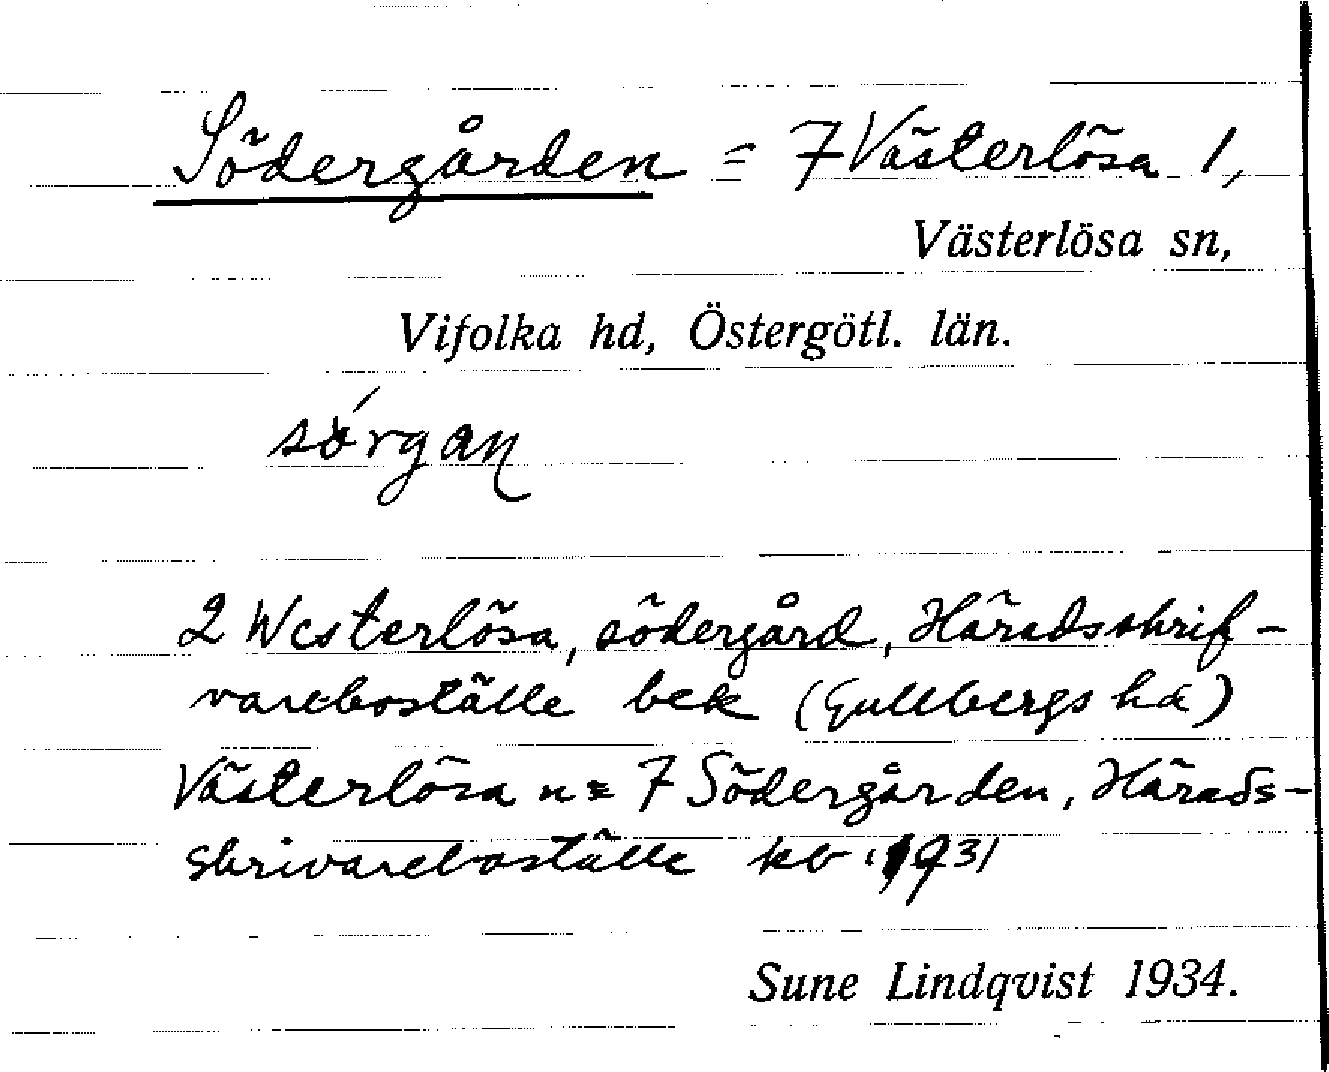 Södergården = 7 Västerlösa 1,
Västerlösa sn,
Vifolka hd, Östergötl. län.
sörgan
2 Westerlösa, södergård, Häradsskrif-
vareboställe bek (Gullbergs hd)
Västerlösa n = 7 Södergården, Härads-
skrivareboställe kb 1931
Sune Lindqvist 1934.